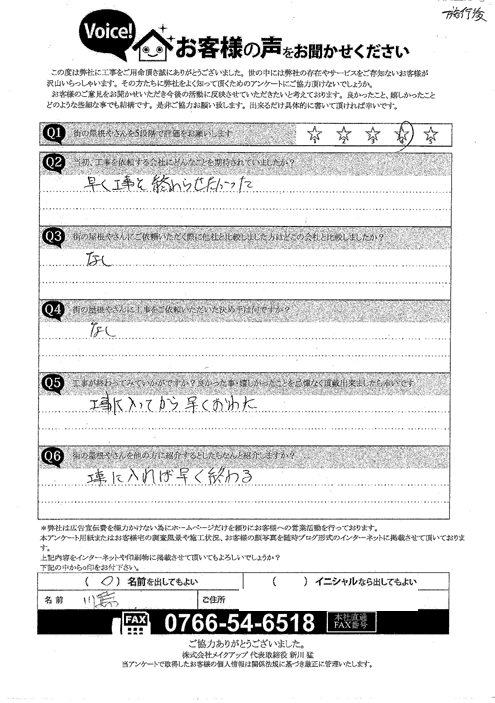 施行後
Voice!
お客様の声をお聞かせください
この度は弊社に工事をご用命頂き誠にありがとうございました。世の中には弊社の存在やサービスをご存知ないお客様が
沢山いらっしゃいます。その方たちに弊社をよく知って頂くためのアンケートにご協力頂けないでしょうか。
お客様のご意見をお聞かせいただき今後の活動に反映させていただきたいと考えております。良かったこと、嬉しかったこと
どのような些細な事でも結構です。是非ご協力お願い致します。出来るだけ具体的に書いて頂ければ幸いです。
Q1 街の屋根やさんを5段階で評価をお願いします
Q2 当初、工事を依頼する会社にどんなことを期待されていましたか?
早く工事を終わらせたかった
Q3 街の屋根やさんにご依頼いただく際に他社と比較しました方はどこの会社と比較しましたか?
なし
Q4 街の屋根やさんに工事をご依頼いただいた決め手は何ですか?
なし
Q5 工事が終わってみていかがですか?良かった事・嬉しかったことを忌憚なく頂戴出来ましたら幸いです
工事に入ってから早くおわた
Q6 街の屋根やさんを他の方に紹介するとしたらなんと紹介しますか?
工事に入れば早く終わる
*弊社は広告宣伝費を極力かけない為にホームページだけを頼りにお客様への営業活動を行っております。
本アンケート用紙またはお客様宅の調査風景や施工状況、お客様の顔写真を随時ブログ形式のインターネットに掲載させて頂いております。
上記内容をインターネットや印刷物に掲載させて頂いてもよろしいでしょうか?
下記の中から○印をお付下さい。
( ○ ) 名前を出してもよい ( ) イニシャルなら出してもよい
名前 ご住所
FAX 0766-54-6518 本社直通 FAX番号
ご協力ありがとうございました。
株式会社メイクアップ 代表取締役 新川 猛
当アンケートで取得したお客様の個人情報は関係法規に基づき厳正に管理いたします。